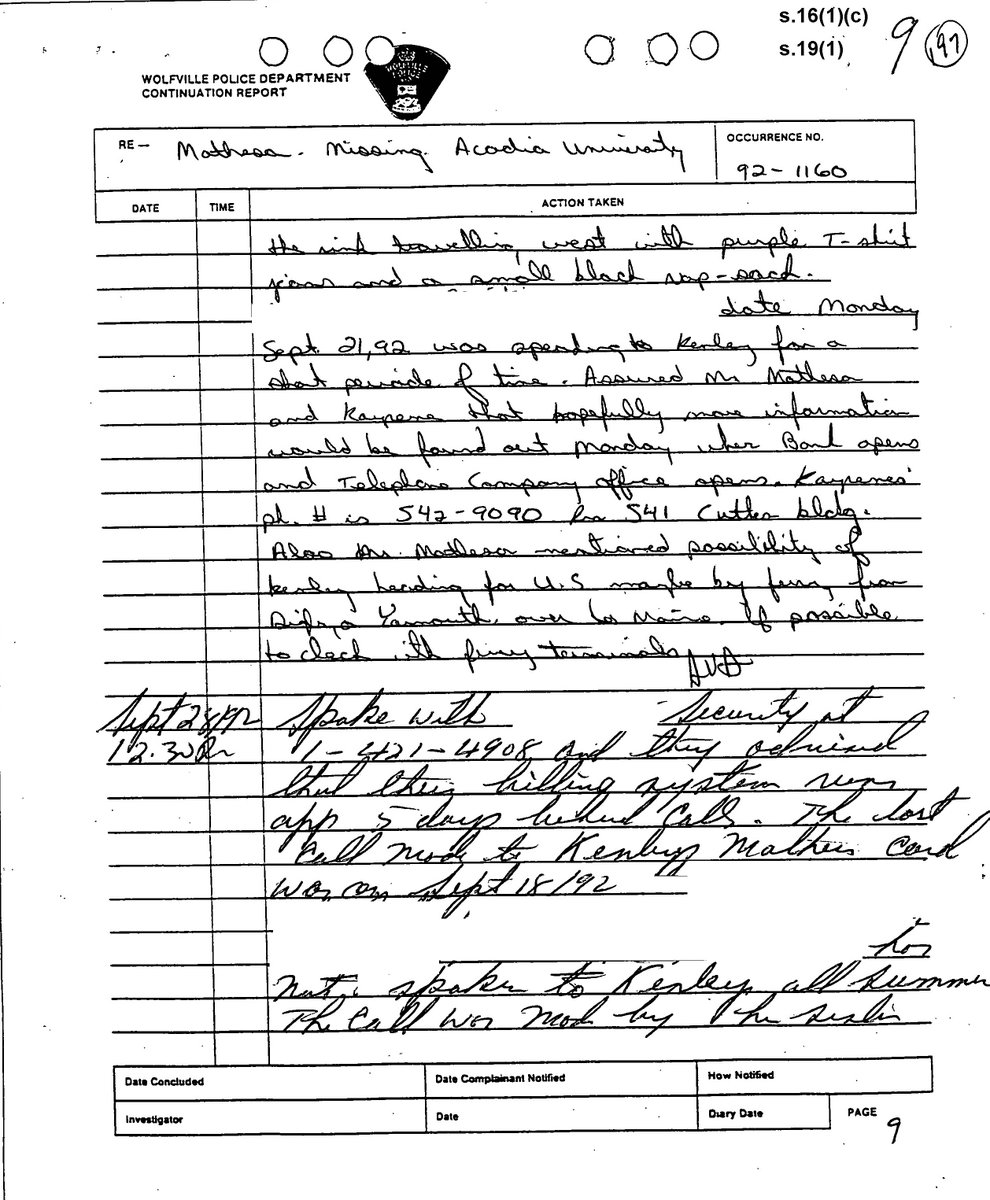 s.16(1)(c)
s.19(1)
9 197
WOLFVILLE POLICE DEPARTMENT
CONTINUATION REPORT
WOLFVILLE
POLICE
RE — Matheson - Missing. Acadia University
OCCURRENCE NO.
92-1160
DATE TIME ACTION TAKEN
travelling west with purple T-shirt
and a small black sack.
date Monday
Sept. 21,92 was to Kenley for a
short periode of time. Assured Mr. Matheson
and Kayrene that hopefully more information
would be found out Monday when Bank opens
and Telephone Company office opens. Kayrene's
ph. # is 542-9090 Rm 541 Cutten bldg.
Also Mr. Matheson mentioned possibility of
Kenley heading for U.S maybe by ferry from
Yarmouth over to Maine. If possible
to check with ferry terminals
Sept 28/92 Spoke with Security at
12:30 1-421-4908 and they advised
that their billing system runs
app 5 days behind calls. The last
call made to Kenleys card
was on Sept 18/92
has
not spoken to Kenley all summer
The call was made by the
Date Concluded
Date Complainant Notified
How Notified
Investigator
Date
Diary Date
PAGE
9